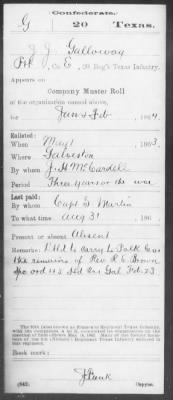 Confederate.
G 20 Texas.
J. J. Galloway
Pvt Co. E, 20 Reg't Texas Infantry.
Appears on
Company Muster Roll
of the organization named above,
for Jan & Feb, 1864.
Enlisted:
When May 1, 1863.
Where Galveston
By whom J. H. McCardell
Period Three years or the war
Last paid:
By whom Capt S. Martin
To what time Aug 31, 186
Present or absent Absent
Remarks: Dtld to carry to Polk Co
the remains of Rev. R. C. Brown
Spo ord 43 Hd Qrs Gal Feb 23.
Book mark:
(642) Copyist.